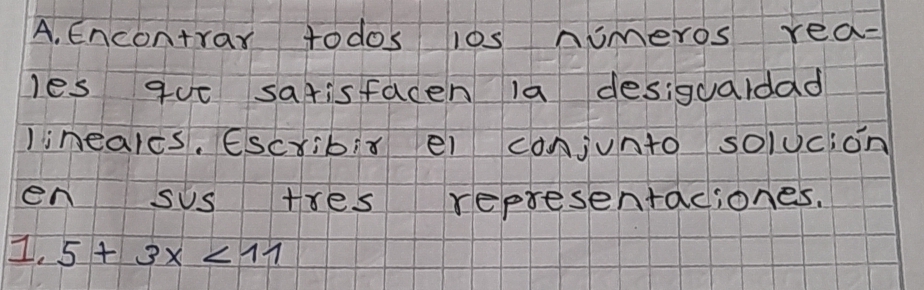 A. Encontrar todos los números rea-
les que satisfacen la desigualdad
lineales. Escribir el conjunto solución
en sus tres representaciones.
1. 5 + 3x < 11